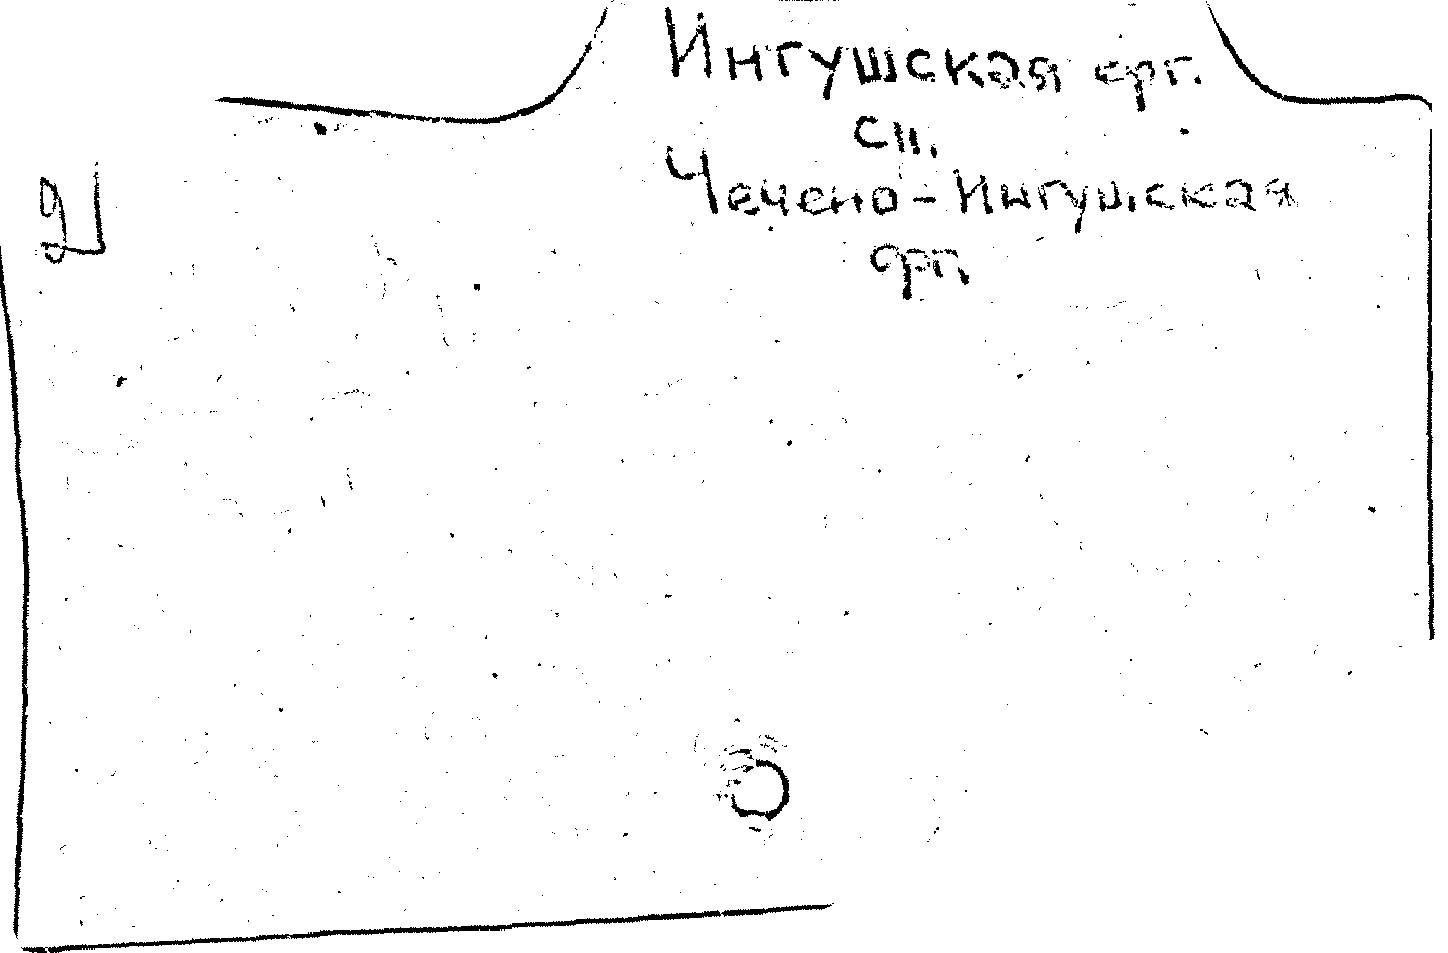 Ингушская орг.
см.
Чечено-Ингушская
орг.